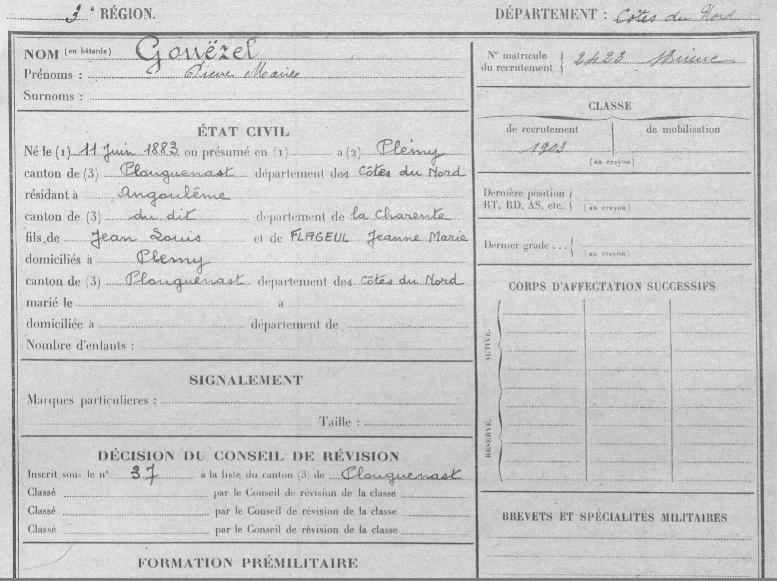 3e RÉGION. DÉPARTEMENT : Côtes du Nord
NOM (en bâtarde) Gouëzel
Prénoms : Pierre Marie
Surnoms :
N° matricule du recrutement } 2423 Brieuc
CLASSE
de recrutement de mobilisation
1903
(au crayon)
ÉTAT CIVIL
Né le (1) 11 Juin 1883 ou présumé en (1) à (2) Plémy
canton de (3) Plouguenast département des Côtes du Nord
résidant à Angoulême
canton de (3) du dit département de la Charente
fils de Jean Louis et de FLAGEUL Jeanne Marie
domiciliés à Plemy
canton de (3) Plouguenast département des Côtes du Nord
marié le a
domiciliée à département de
Nombre d'enfants :
Dernière position
RT, RD, AS, etc. (au crayon)
Dernier grade ... (au crayon)
CORPS D'AFFECTATION SUCCESSIFS
ACTIVE.
RESERVE.
SIGNALEMENT
Marques particulieres :
Taille :
DÉCISION DU CONSEIL DE RÉVISION
Inscrit sous le n° 37 à la liste du canton (3) de Plouguenast
Classé par le Conseil de révision de la classe
Classé par le Conseil de révision de la classe
Classé par le Conseil de révision de la classe
BREVETS ET SPÉCIALITÉS MILITAIRES
FORMATION PRÉMILITAIRE